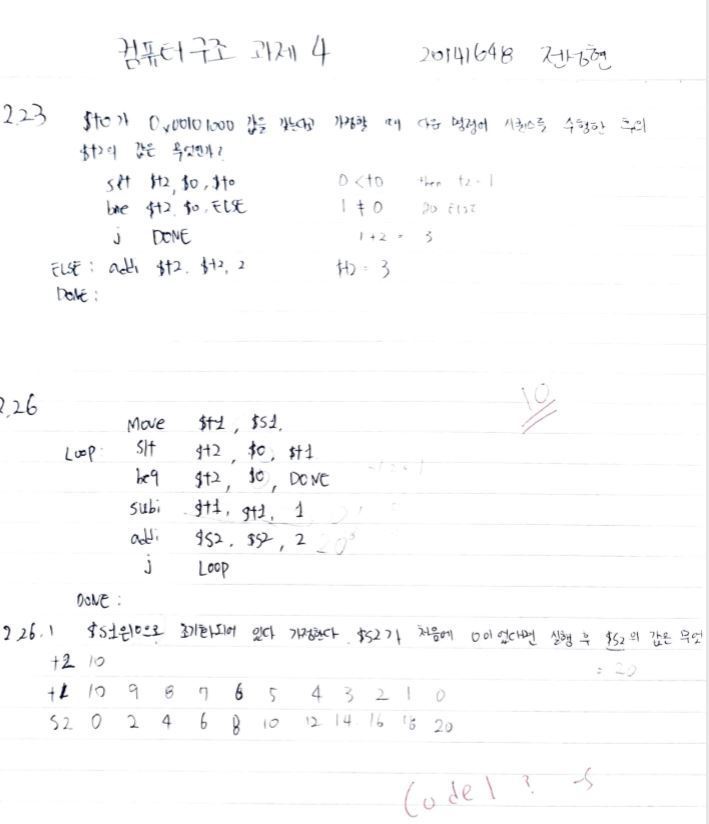 컴퓨터구조 과제 4 20141648 전성현
2.23 $t0가 0x00101000 값을 갖는다고 가정할 때 다음 명령어 시퀀스를 수행한 후의
$t2의 값은 무엇인가?
slt $t2, $0, $t0 0 < t0 then t2 = 1
bne $t2, $0, ELSE 1 ≠ 0 go ELSE
j DONE 1+2 = 3
ELSE : addi $t2, $t2, 2 $t2 = 3
DONE :
10
2.26
Move $t1, $s1,
Loop: Slt $t2, $0, $t1
beq $t2, $0, DONE
subi $t1, $t1, 1
addi $s2, $s2, 2
j LOOP
DONE :
2.26.1 초기화되어 있다 가정한다. $s2가 처음에 0이었다면 실행 후 $s2의 값은 무엇
= 20
t2 10
t1 10 9 8 7 6 5 4 3 2 1 0
S2 0 2 4 6 8 10 12 14 16 18 20
Code 1 ? -5